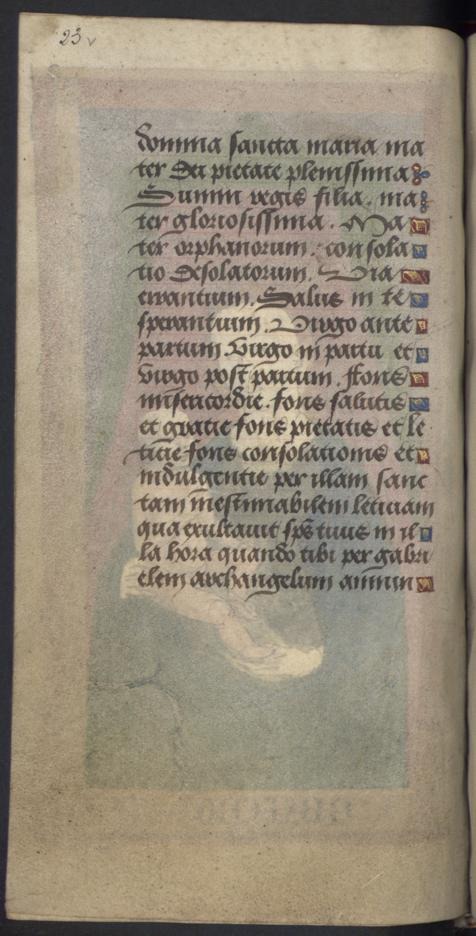 23v
domina sancta maria ma
ter dei pietate plenissima
Summi regis filia. ma
ter gloriosissima. Ma
ter orphanorum. consola
tio desolatorum. Via
errantium. Salus in te
sperantium. Virgo ante
partum. virgo in partu et
virgo post partum. ffons
misericordie. fons salutis
et gratie fons pietatis et le
ticie fons consolationis et
indulgentie per illam sanc
tam inestimabilem leticiam
qua exultauit sps tuus in il
la hora quando tibi per gabri
elem archangelum annun